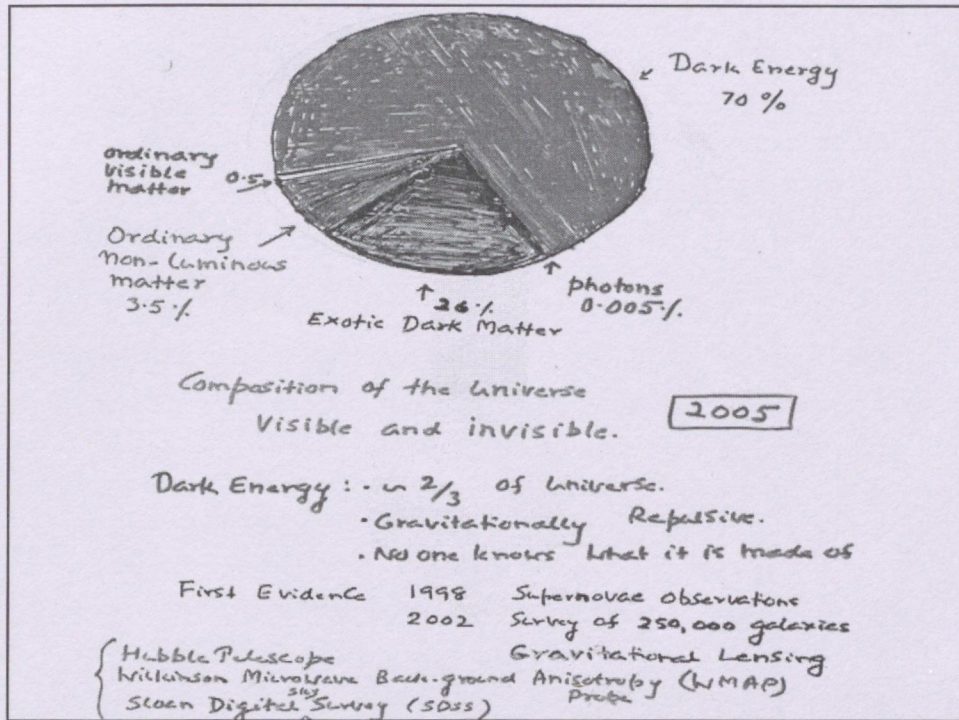 Dark Energy
70 %
Ordinary
Visible
matter 0.5
Ordinary
non-Luminous
matter
3.5 %
photons
0.005 %
26 %
Exotic Dark Matter
Composition of the Universe
Visible and invisible.
2005
Dark Energy : · ~ 2/3 of Universe.
· Gravitationally Repulsive.
· No one knows what it is made of
First Evidence 1998 Supernovae observations
2002 Survey of 250,000 galaxies
Hubble Telescope Gravitational Lensing
Wilkinson Microwave Back-ground Anisotropy (WMAP)
Probe
Sky
Sloan Digital Survey (SDSS)